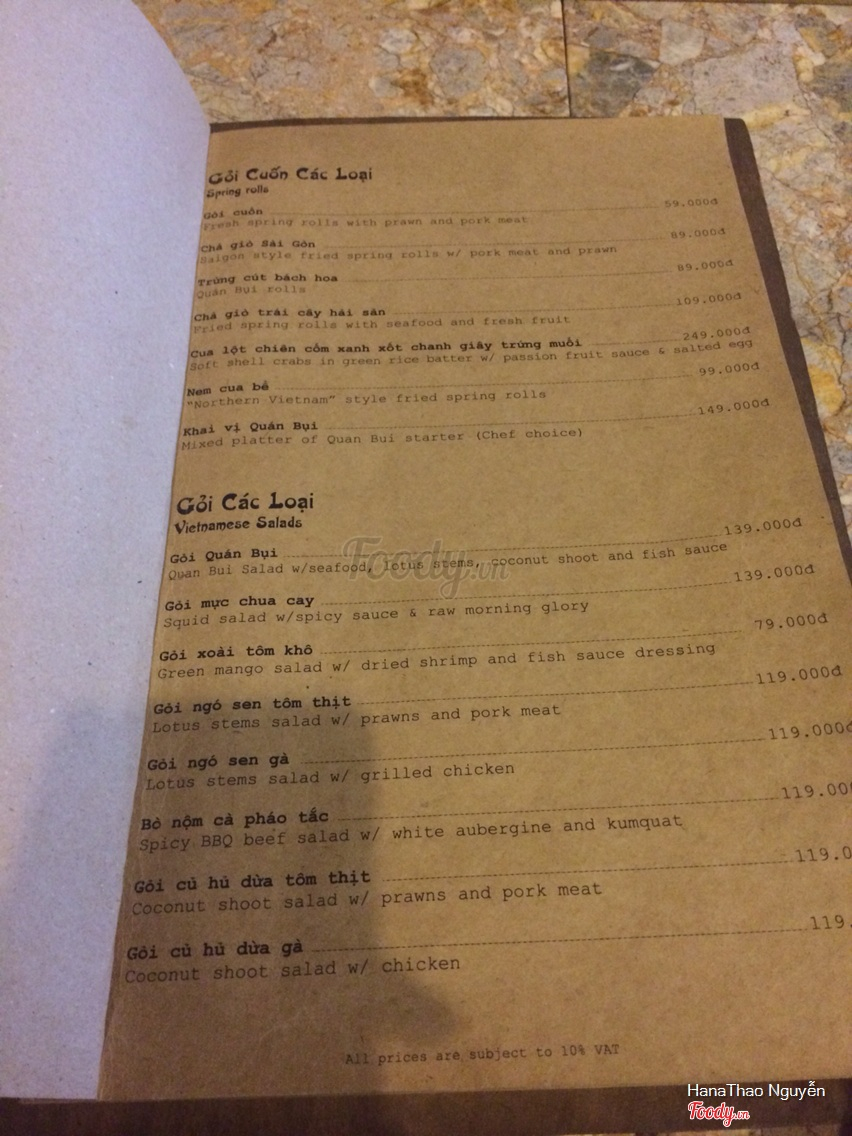 Gỏi Cuốn Các Loại
Spring rolls
Gỏi cuốn 59.000đ
Fresh spring rolls with prawn and pork meat
Chả giò Sài Gòn 89.000đ
Saigon style fried spring rolls w/ pork meat and prawn
Trứng cút bách hoa 89.000đ
Quán Bụi rolls
Chả giò trái cây hải sản 109.000đ
Fried spring rolls with seafood and fresh fruit
Cua lột chiên cốm xanh xốt chanh giây trứng muối 249.000đ
Soft shell crabs in green rice batter w/ passion fruit sauce & salted egg
Nem cua bể 99.000đ
"Northern Vietnam" style fried spring rolls
Khai vị Quán Bụi 149.000đ
Mixed platter of Quan Bui starter (Chef choice)
Gỏi Các Loại
Vietnamese Salads
Gỏi Quán Bụi 139.000đ
Quan Bui Salad w/seafood, lotus stems, coconut shoot and fish sauce
Gỏi mực chua cay 139.000đ
Squid salad w/spicy sauce & raw morning glory
Gỏi xoài tôm khô 79.000đ
Green mango salad w/ dried shrimp and fish sauce dressing
Gỏi ngó sen tôm thịt 119.000đ
Lotus stems salad w/ prawns and pork meat
Gỏi ngó sen gà 119.000đ
Lotus stems salad w/ grilled chicken
Bò nộm cà pháo tắc 119.000
Spicy BBQ beef salad w/ white aubergine and kumquat
Gỏi củ hủ dừa tôm thịt 119.0
Coconut shoot salad w/ prawns and pork meat
Gỏi củ hủ dừa gà 119.
Coconut shoot salad w/ chicken
All prices are subject to 10% VAT
Foody.vn
HanaThao Nguyễn
Foody.vn